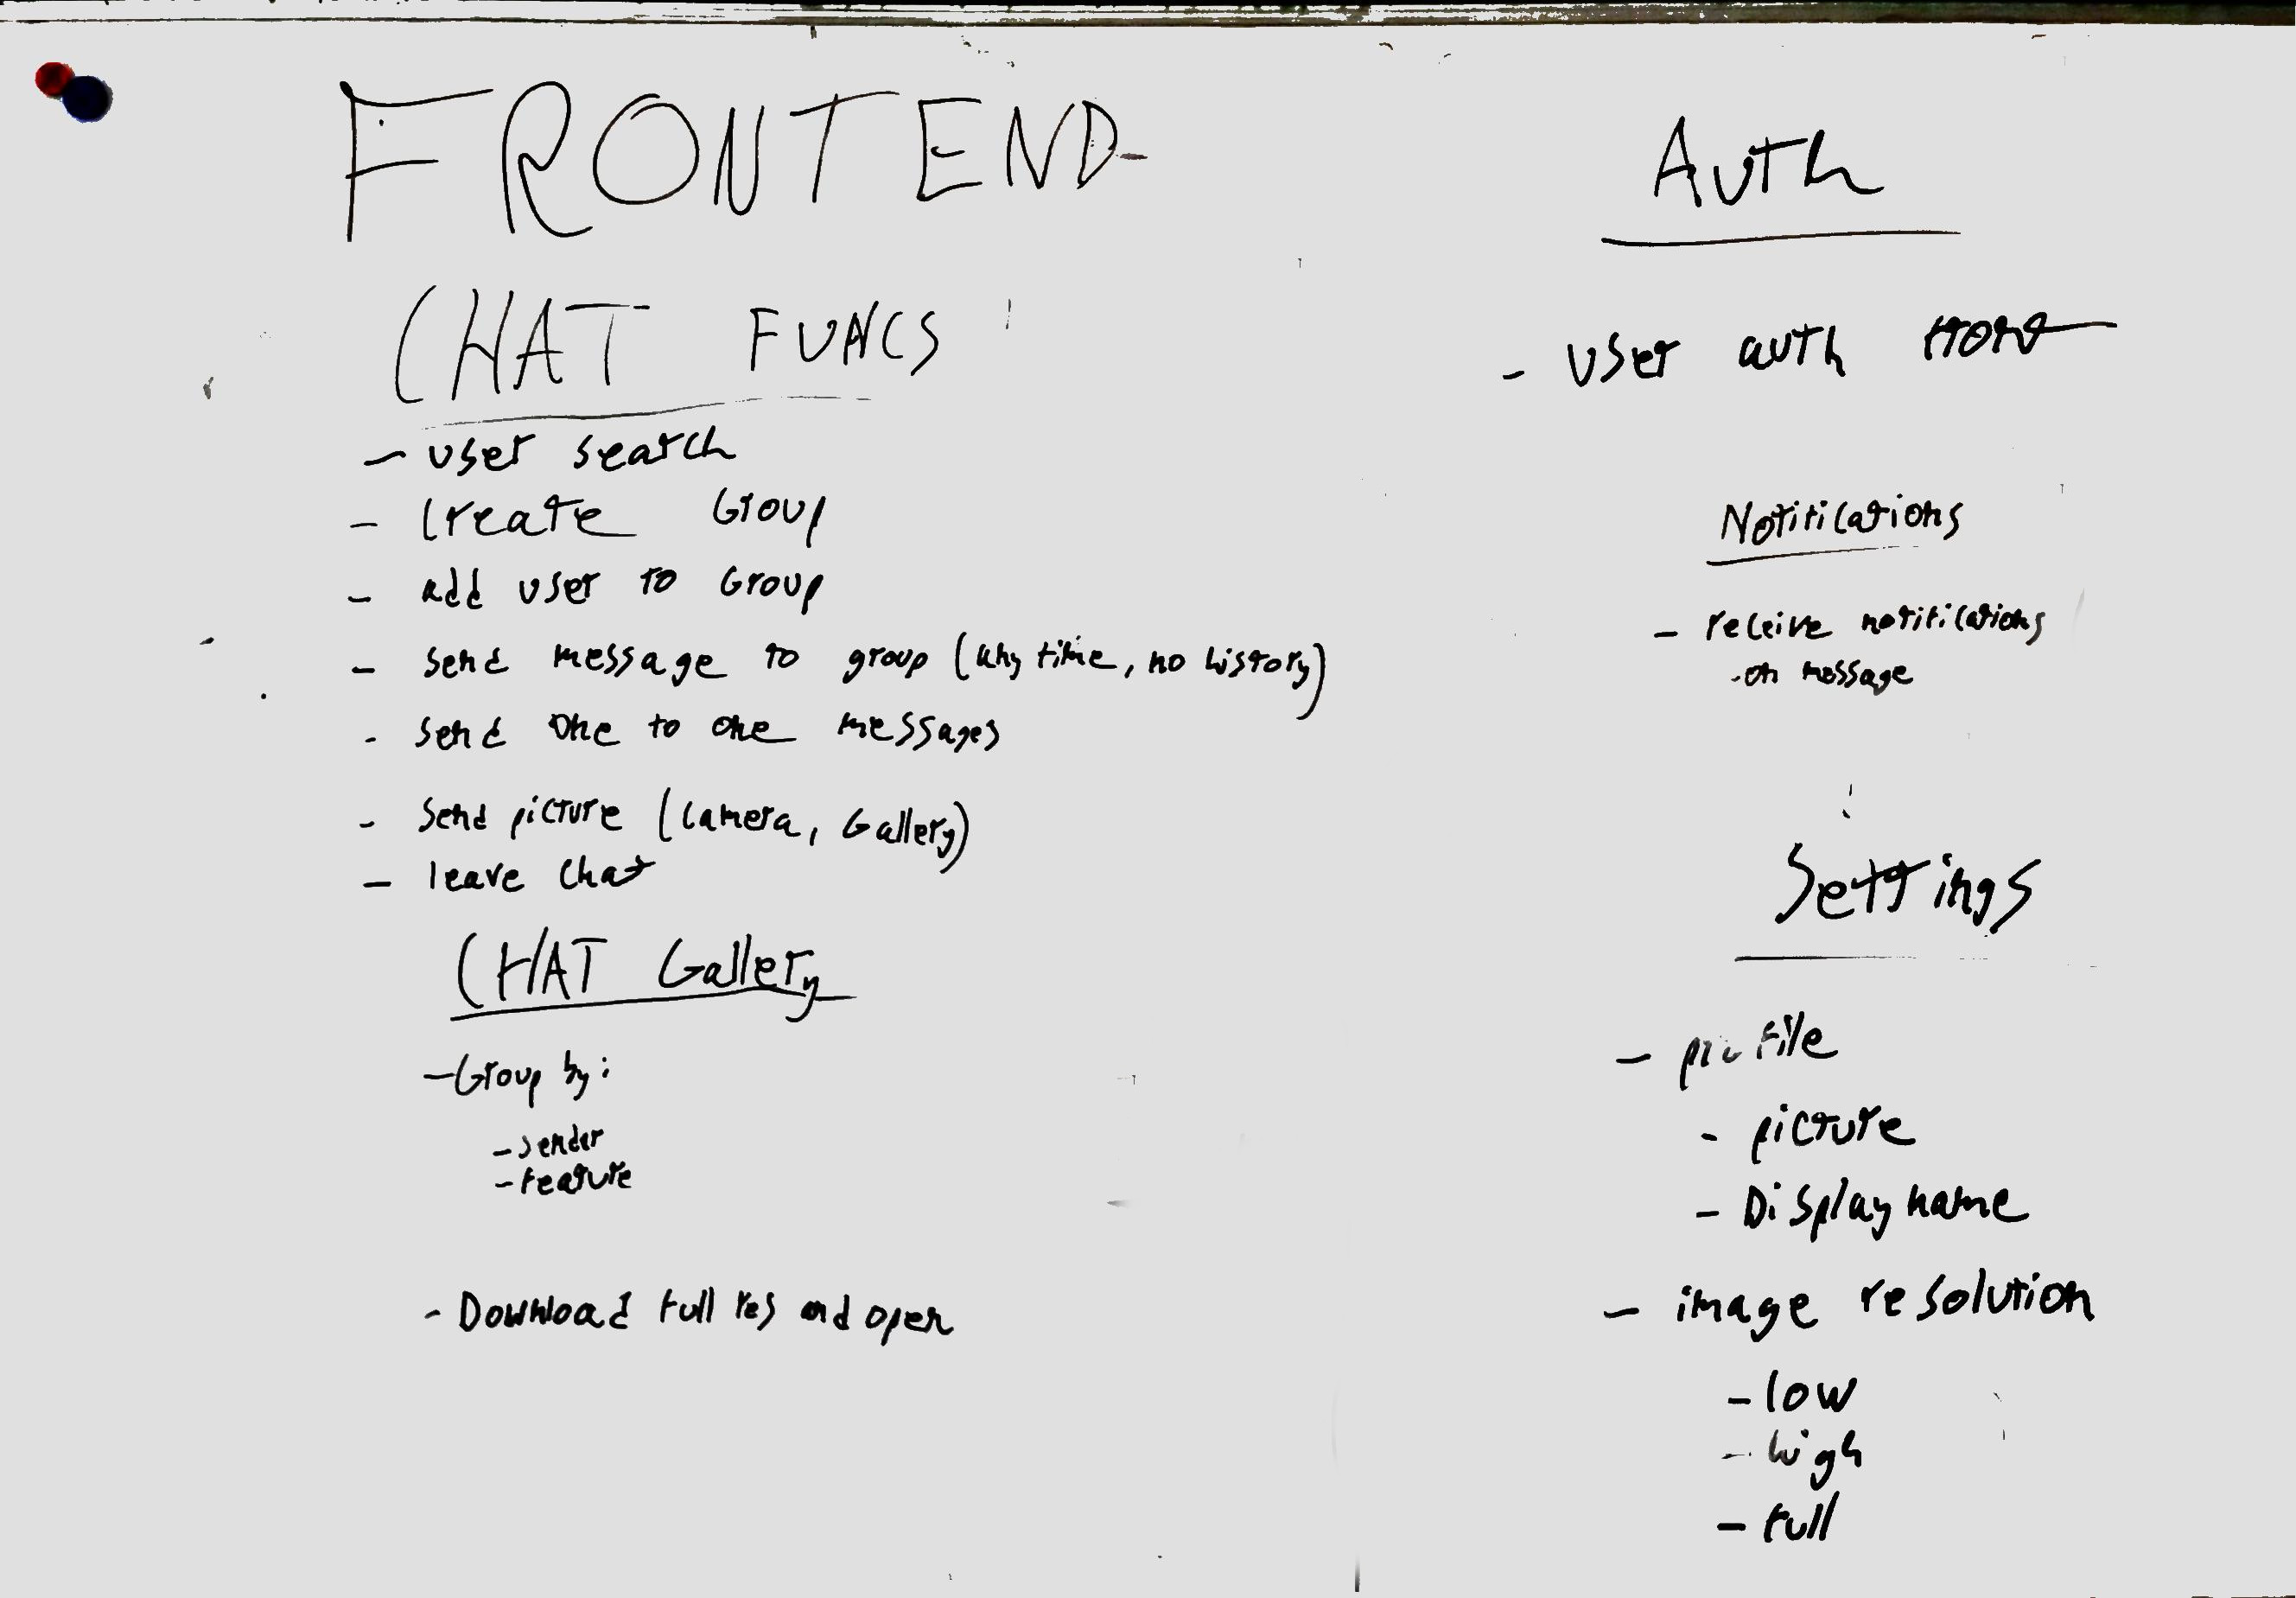 FRONTEND
CHAT FUNCS
- user search
- Create Group
- add user to Group
- send message to group (any time, no history)
- send one to one messages
- send picture (Camera, Gallery)
- leave chat
CHAT Gallery
- Group by:
- sender
- feature
- Download full res and open
Auth
- user auth
Notifications
- receive notifications
- on message
Settings
- profile
- picture
- Display name
- image resolution
- low
- high
- full